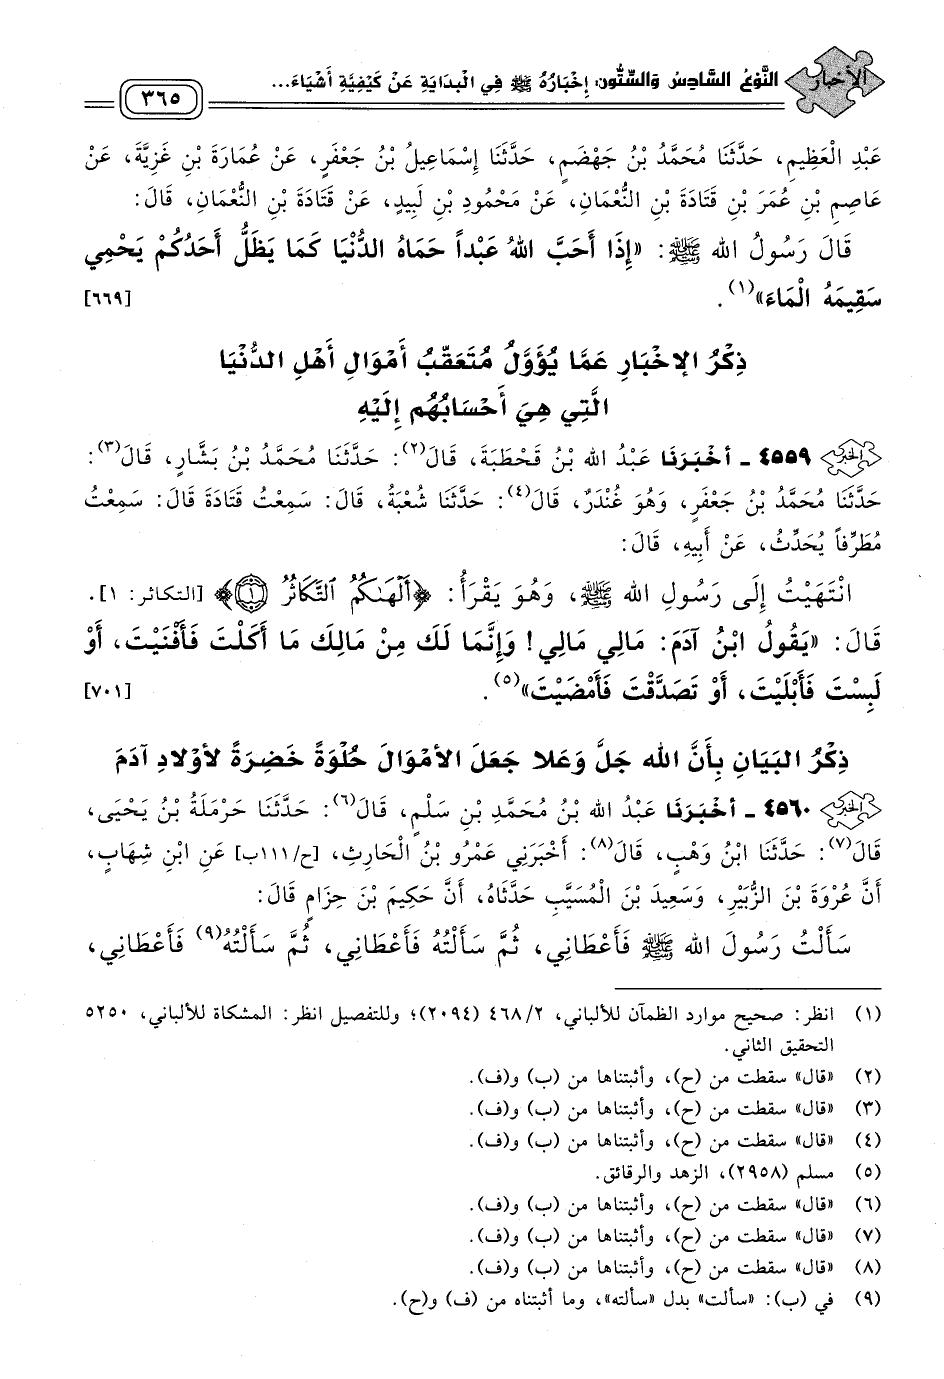 الأخبار
النَّوْعُ السَّادِسُ وَالسِّتُّونَ: إِخْبَارُهُ ﷺ فِي الْبِدَايَةِ عَنْ كَيْفِيَّةِ أَشْيَاءَ...
٣٦٥
عَبْدِ الْعَظِيمِ، حَدَّثَنَا مُحَمَّدُ بْنُ جَهْضَمٍ، حَدَّثَنَا إِسْمَاعِيلُ بْنُ جَعْفَرٍ، عَنْ عُمَارَةَ بْنِ غَزِيَّةَ، عَنْ
عَاصِمِ بْنِ عُمَرَ بْنِ قَتَادَةَ بْنِ النُّعْمَانِ، عَنْ مَحْمُودِ بْنِ لَبِيدٍ، عَنْ قَتَادَةَ بْنِ النُّعْمَانِ، قَالَ:
قَالَ رَسُولُ الله ﷺ: «إِذَا أَحَبَّ اللهُ عَبْداً حَمَاهُ الدُّنْيَا كَمَا يَظَلُّ أَحَدُكُمْ يَحْمِي
سَقِيمَهُ الْمَاءَ»(١). [٦٦٩]
ذِكْرُ الإِخْبَارِ عَمَّا يُؤَوَّلُ مُتَعَقِّبُ أَمْوَالِ أَهْلِ الدُّنْيَا
الَّتِي هِيَ أَحْسَابُهُم إِلَيْهِ
٤٥٥٩ - أَخْبَرَنَا عَبْدُ الله بْنُ قَحْطَبَةَ، قَالَ(٢): حَدَّثَنَا مُحَمَّدُ بْنُ بَشَّارٍ، قَالَ(٣):
حَدَّثَنَا مُحَمَّدُ بْنُ جَعْفَرٍ، وَهُوَ غُنْدَرٌ، قَالَ(٤): حَدَّثَنَا شُعْبَةُ، قَالَ: سَمِعْتُ قَتَادَةَ قَالَ: سَمِعْتُ
مُطَرِّفاً يُحَدِّثُ، عَنْ أَبِيهِ، قَالَ:
انْتَهَيْتُ إِلَى رَسُولِ الله ﷺ، وَهُوَ يَقْرَأُ: ﴿أَلْهَىٰكُمُ ٱلتَّكَاثُرُ ١﴾ [التكاثر: ١].
قَالَ: «يَقُولُ ابْنُ آدَمَ: مَالِي مَالِي! وَإِنَّمَا لَكَ مِنْ مَالِكَ مَا أَكَلْتَ فَأَفْنَيْتَ، أَوْ
لَبِسْتَ فَأَبْلَيْتَ، أَوْ تَصَدَّقْتَ فَأَمْضَيْتَ»(٥). [٧٠١]
ذِكْرُ الْبَيَانِ بِأَنَّ الله جَلَّ وَعَلا جَعَلَ الأَمْوَالَ حُلْوَةً خَضِرَةً لأَوْلادِ آدَمَ
٤٥٦٠ - أَخْبَرَنَا عَبْدُ الله بْنُ مُحَمَّدِ بْنِ سَلْمٍ، قَالَ(٦): حَدَّثَنَا حَرْمَلَةُ بْنُ يَحْيَى،
قَالَ(٧): حَدَّثَنَا ابْنُ وَهْبٍ، قَالَ(٨): أَخْبَرَنِي عَمْرُو بْنُ الْحَارِثِ، [ح/١١١ب] عَنِ ابْنِ شِهَابٍ،
أَنَّ عُرْوَةَ بْنَ الزُّبَيْرِ، وَسَعِيدَ بْنَ الْمُسَيَّبِ حَدَّثَاهُ، أَنَّ حَكِيمَ بْنَ حِزَامٍ قَالَ:
سَأَلْتُ رَسُولَ الله ﷺ فَأَعْطَانِي، ثُمَّ سَأَلْتُهُ فَأَعْطَانِي، ثُمَّ سَأَلْتُهُ(٩) فَأَعْطَانِي،
(١) انظر: صحيح موارد الظمآن للألباني، ٢/ ٤٦٨ (٢٠٩٤)؛ وللتفصيل انظر: المشكاة للألباني، ٥٢٥٠
التحقيق الثاني.
(٢) «قال» سقطت من (ح)، وأثبتناها من (ب) و(ف).
(٣) «قال» سقطت من (ح)، وأثبتناها من (ب) و(ف).
(٤) «قال» سقطت من (ح)، وأثبتناها من (ب) و(ف).
(٥) مسلم (٢٩٥٨)، الزهد والرقائق.
(٦) «قال» سقطت من (ح)، وأثبتناها من (ب) و(ف).
(٧) «قال» سقطت من (ح)، وأثبتناها من (ب) و(ف).
(٨) «قال» سقطت من (ح)، وأثبتناها من (ب) و(ف).
(٩) في (ب): «سألت» بدل «سألته»، وما أثبتناه من (ف) و(ح).